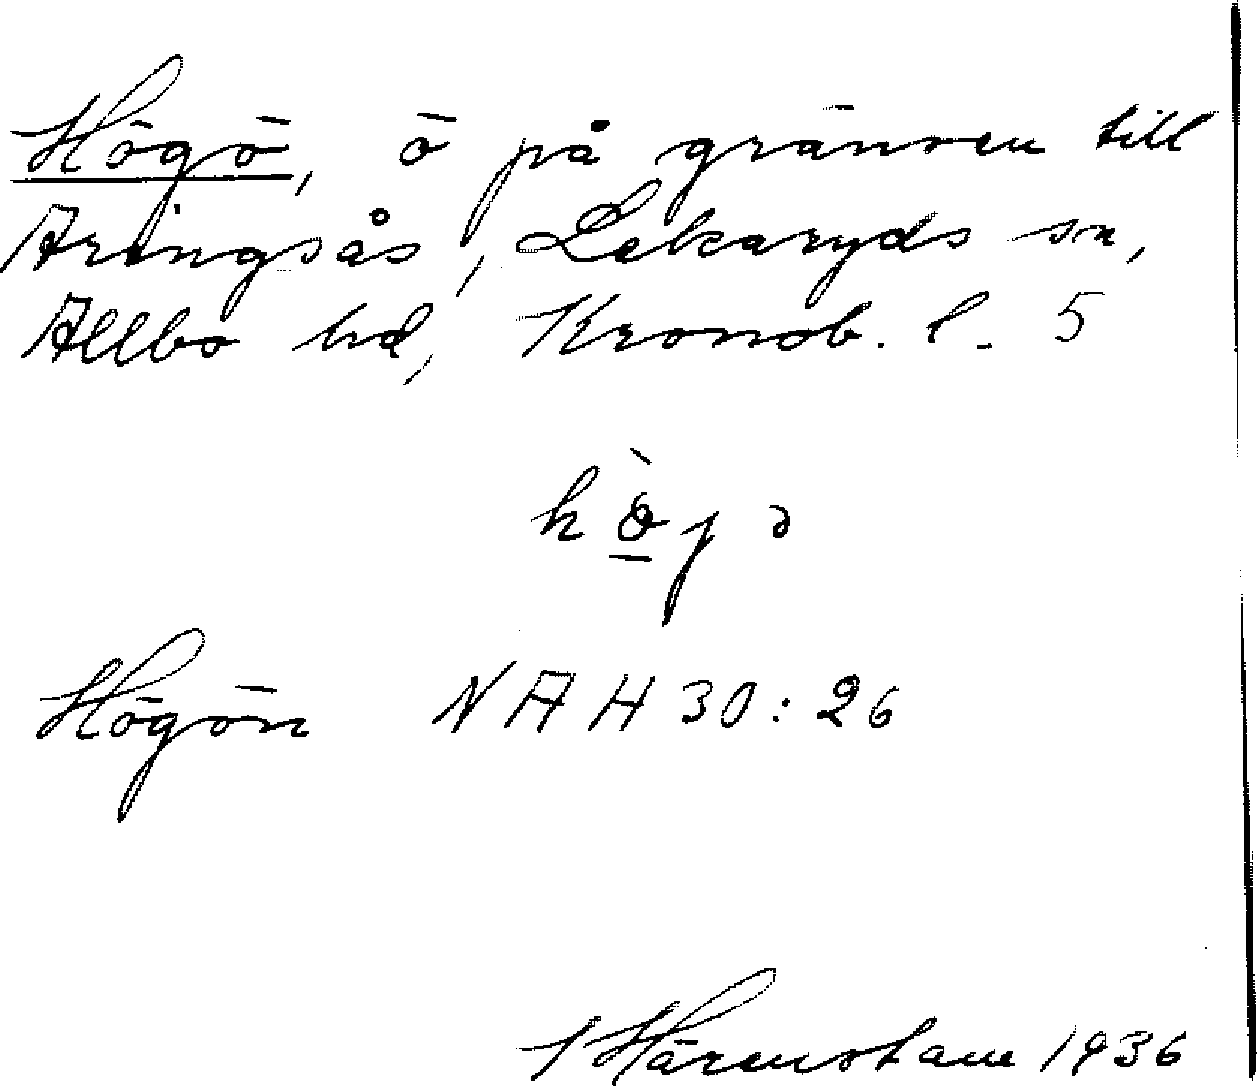 Högö, ö på gränsen till
Aringsås, Lekaryds sn,
Allbo hd, Kronob. l. 5
Högön NAH 30:26
J Härenstam 1936